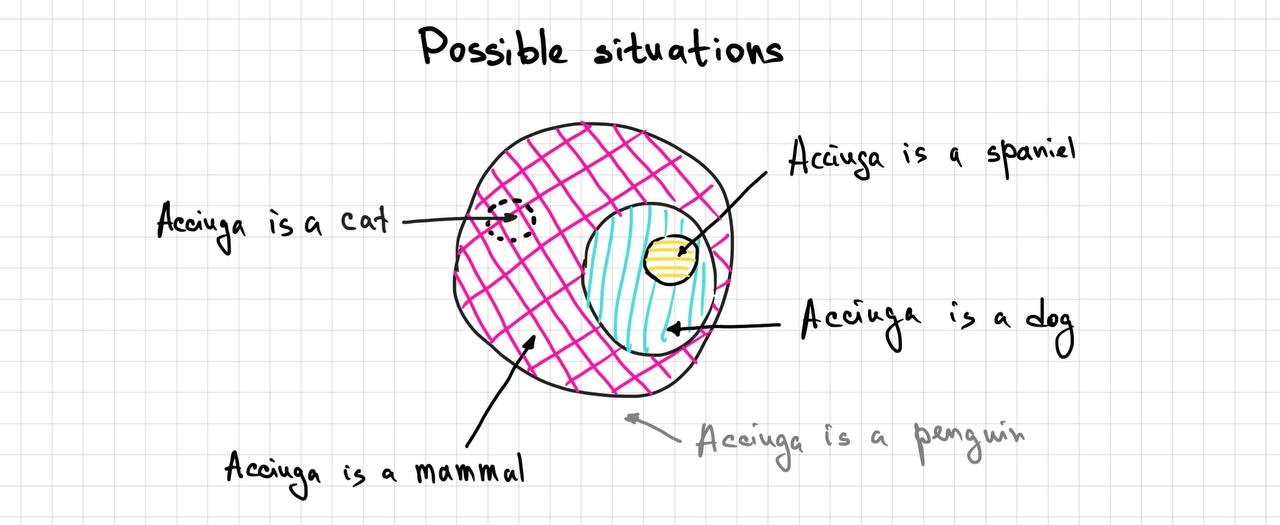 Possible situations
Acciuga is a spaniel
Acciuga is a cat
Acciuga is a dog
Acciuga is a penguin
Acciuga is a mammal